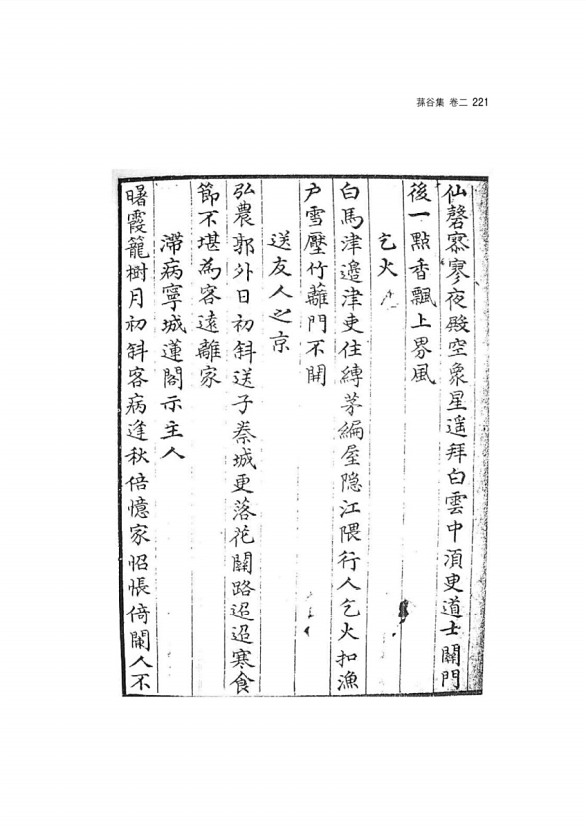 蓀谷集 卷二 221
仙磬寥寥夜殿空衆星遥拜白雲中湏吏道士關門
後一點香飄上界風
乞火
白馬津邉津吏住縳茅編屋隐江隈行人乞火扣漁
户雪壓竹蘺門不開
送友人之京
弘農郭外日初斜送子秦城更落花關路迢迢寒食
節不堪為客遠離家
滯病寧城蓮閣示主人
曙霞籠樹月初斜客病逢秋倍憶家怊悵倚闌人不